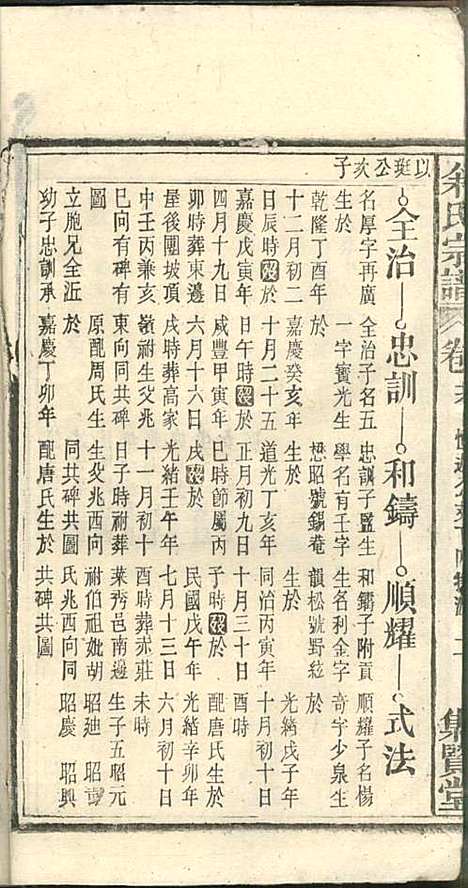 余氏宗譜 卷 集賢堂
以珽公亥子
全治 忠訓 和鑄 順耀 式法
名厚字再廣
生於
乾隆丁酉年
十二月初二
日辰時殁於
嘉慶戊寅年
四月十九日
卯時葬東邊
屋後團坡頂
中壬丙兼亥
巳向有碑有
圖
立胞兄全迋
幼子忠訓承
全治子名五
一字寳光生
於
嘉慶癸亥年
十月二十五
日午時殁於
咸豐甲寅年
六月十六日
戌時葬高家
嶺祔生父兆
東向同共碑
原配周氏生
於
嘉慶丁卯年
忠訓子監生
學名有壬字
懋昭號錫菴
生於
道光丁亥年
正月初九日
巳時節屬丙
戌殁於
光緒壬午年
十一月初十
日子時祔葬
生父兆西向
同共碑共圖
配唐氏生於
和鑄子附貢
生名利金字
韻松號野紘
生於
同治丙寅年
十月三十日
子時殁於
民國戊午年
七月十三日
酉時葬赤莊
葉秀邑南邊
祔伯祖妣胡
氏兆西向同
共碑共圖
順耀子名楊
奇字少泉生
於
光緒戊子年
十月初十日
酉時
配唐氏生於
光緒辛卯年
六月初十日
未時
生子五昭元
昭廸 昭
昭慶 昭興